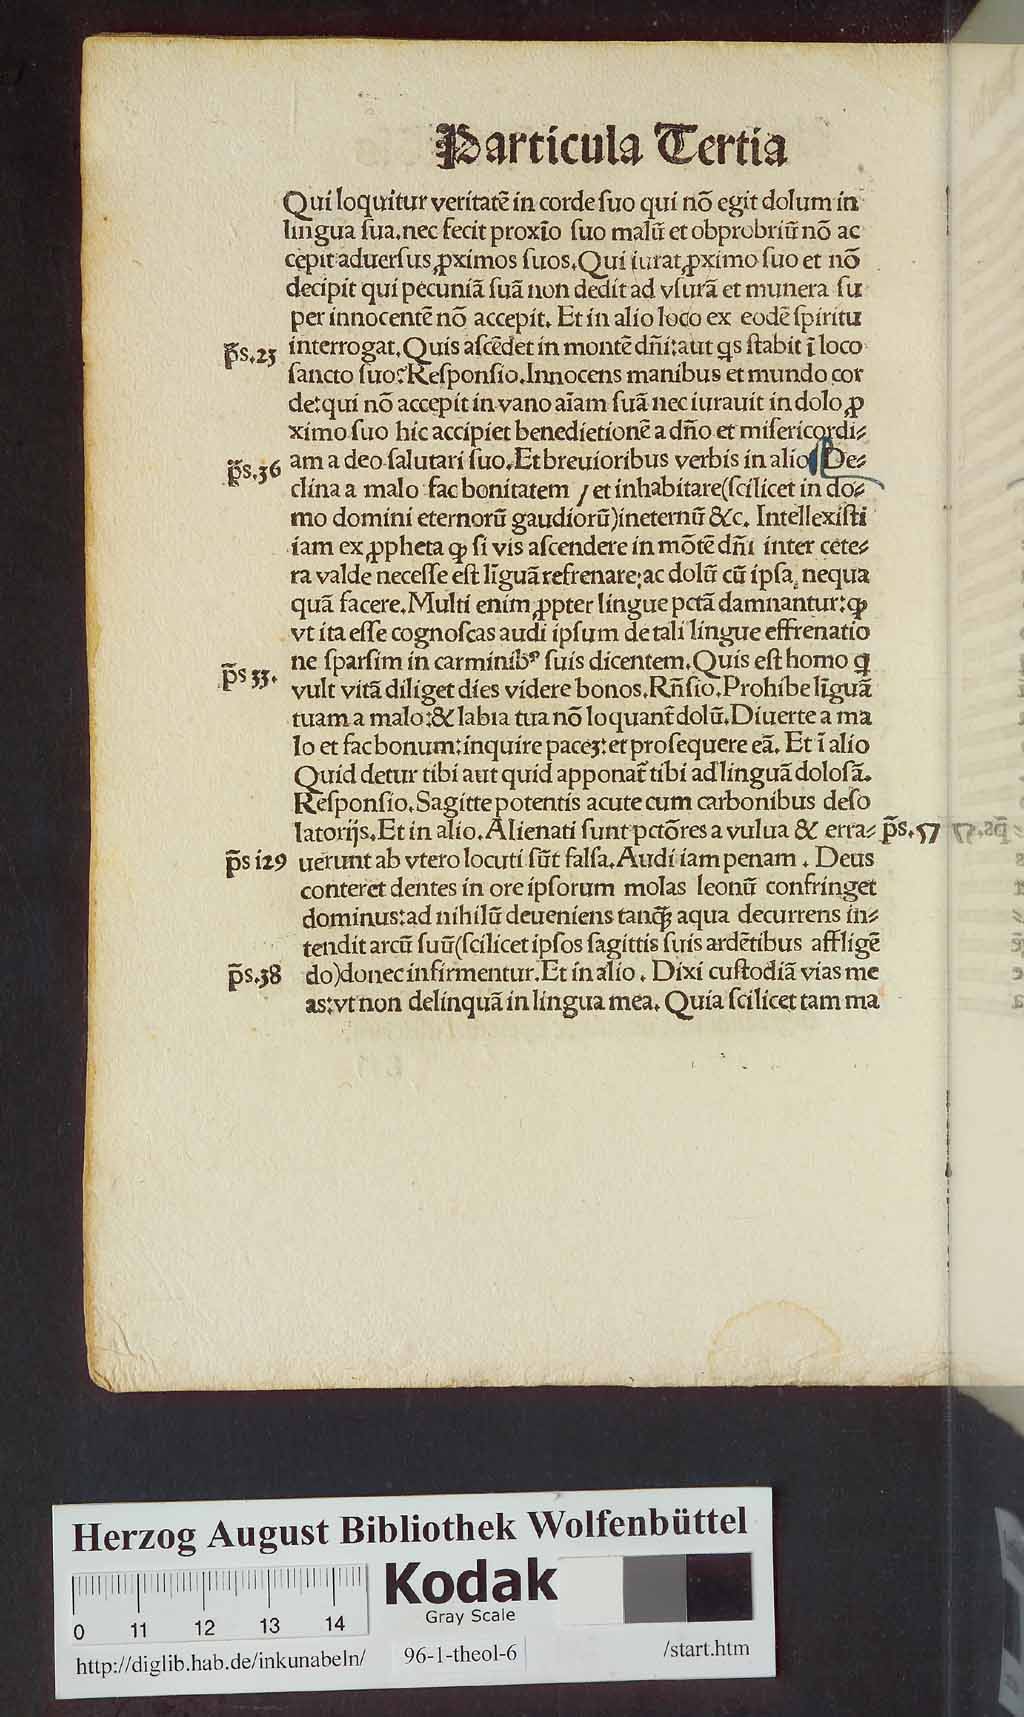 Particula Tertia
Qui loquitur veritatē in corde ſuo qui nō egit dolum in
lingua ſua. nec fecit proxīo ſuo malū et obprobriū nō ac
cepit aduerſus ꝓximos ſuos. Qui iurat ꝓximo ſuo et nō
decipit qui pecuniā ſuā non dedit ad vſurā et munera ſu
per innocentē nō accepit. Et in alio loco ex eodē ſpiritu
p̄s. 23 interrogat. Quis aſcēdet in montē dn̄i: aut qͥs ſtabit ī loco
ſancto ſuo? Reſponſio. Innocens manibus et mundo cor
de: qui nō accepit in vano aīam ſuā nec iurauit in dolo ꝓ
ximo ſuo hic accipiet benedietionē a dn̄o et miſericordi⸗
p̄s. 36 am a deo ſalutari ſuo. Et breuioribus verbis in alio De⸗
clina a malo fac bonitatem / et inhabitare (ſcilicet in do⸗
mo domini eternorū gaudiorū) ineternū &c. Intellexiſti
iam ex ꝓpheta ꝙ ſi vis aſcendere in mōtē dn̄i inter cete⸗
ra valde neceſſe eſt līguā refrenare: ac dolū cū ipſa nequa
quā facere. Multi enim ꝓpter lingue pctā damnantur: ꝙ
vt ita eſſe cognoſcas audi ipſum de tali lingue effrenatio
ne ſparſim in carminibꝰ ſuis dicentem. Quis eſt homo qͥ
p̄s 33. vult vitā diliget dies videre bonos. Rn̄ſio. Prohibe līguā
tuam a malo: & labia tua nō loquant̄ dolū. Diuerte a ma
lo et fac bonum: inquire paceꝫ: et proſequere eā. Et ī alio
Quid detur tibi aut quid apponat̄ tibi ad linguā doloſā.
Reſponſio. Sagitte potentis acute cum carbonibus deſo
latorijs. Et in alio. Alienati ſunt pctōres a vulua & erra⸗ p̄s. 57
p̄s i29 uerunt ab vtero locuti ſūt falſa. Audi iam penam. Deus
conteret dentes in ore ipſorum molas leonū confringet
dominus: ad nihilū deueniens tanqꝫ aqua decurrens in⸗
tendit arcū ſuū (ſcilicet ipſos ſagittis ſuis ardētibus affligē
p̄s. 38 do) donec infirmentur. Et in alio. Dixi cuſtodiā vias me
as: vt non delinquā in lingua mea. Quia ſcilicet tam ma
Herzog August Bibliothek Wolfenbüttel
Kodak
Gray Scale
0 11 12 13 14
http://diglib.hab.de/inkunabeln/ 96-1-theol-6 /start.htm